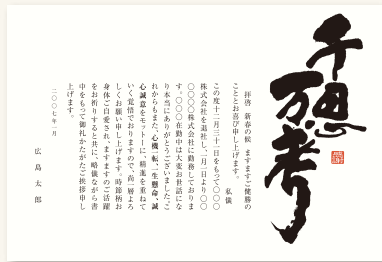 千思万考
拝啓 新春の候 ますますご健勝の
こととお喜び申し上げます。
私儀
この度十二月三十一日をもって〇〇〇
株式会社を退社し、一月一日より〇〇
〇〇〇〇株式会社に勤務しておりま
す。〇〇〇在勤中は大変お世話にな
り本当にありがとうございました。こ
れからもまた、心機一転、一生懸命、誠
心誠意をモットーに、精進を重ねて
いく覚悟でおりますので、尚一層よろ
しくお願い申し上げます。時節柄お
身体ご自愛され、ますますのご活躍
をお祈りすると共に、略儀ながら書
中をもって御礼かたがたご挨拶申し
上げます。
二〇〇七年一月
広島 太郎